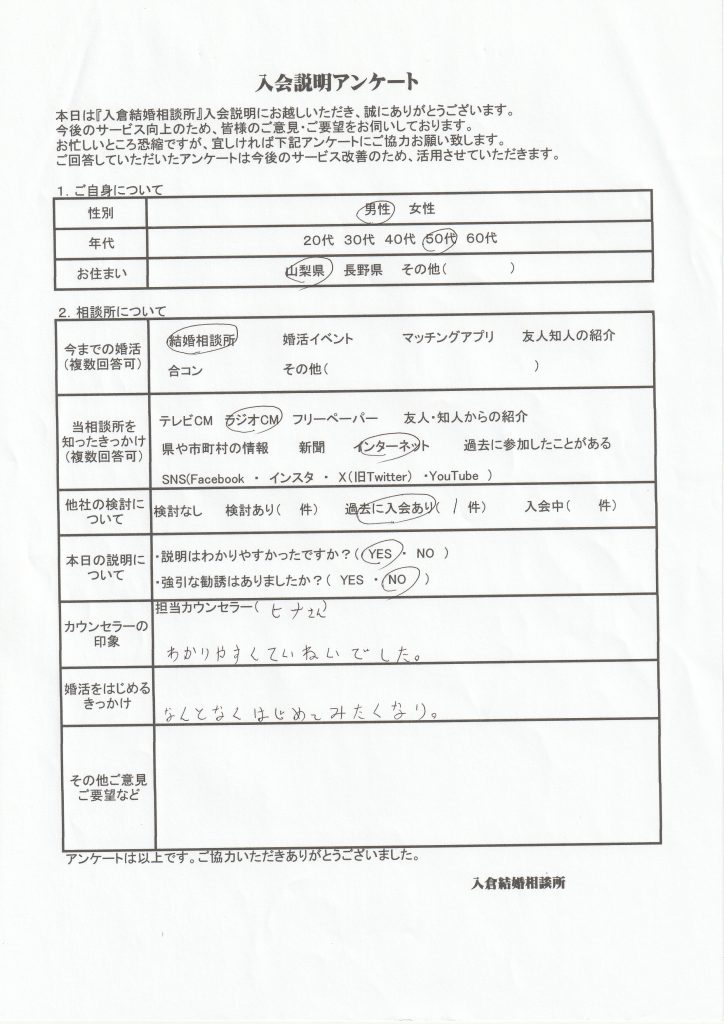 入会説明アンケート
本日は『入倉結婚相談所』入会説明にお越しいただき、誠にありがとうございます。
今後のサービス向上のため、皆様のご意見・ご要望をお伺いしております。
お忙しいところ恐縮ですが、宜しければ下記アンケートにご協力お願い致します。
ご回答していただいたアンケートは今後のサービス改善のため、活用させていただきます。
1. ご自身について
性別 男性 女性
年代 20代 30代 40代 50代 60代
お住まい 山梨県 長野県 その他( )
2. 相談所について
今までの婚活
(複数回答可)
結婚相談所 婚活イベント マッチングアプリ 友人知人の紹介
合コン その他( )
当相談所を
知ったきっかけ
(複数回答可)
テレビCM ラジオCM フリーペーパー 友人・知人からの紹介
県や市町村の情報 新聞 インターネット 過去に参加したことがある
SNS(Facebook ・ インスタ ・ X(旧Twitter) ・YouTube )
他社の検討に
ついて
検討なし 検討あり( 件) 過去に入会あり( 1 件) 入会中( 件)
本日の説明に
ついて
・説明はわかりやすかったですか?( YES ・ NO )
・強引な勧誘はありましたか?( YES ・ NO )
カウンセラーの
印象
担当カウンセラー( ヒナさん
わかりやすくていねいでした。
婚活をはじめる
きっかけ
なんとなくはじめてみたくなり。
その他ご意見
ご要望など
アンケートは以上です。ご協力いただきありがとうございました。
入倉結婚相談所